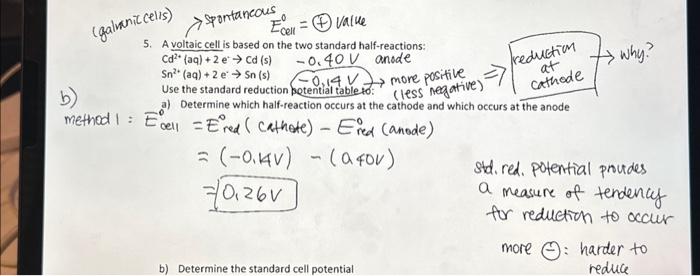 (galvanic cells) → spontaneous
E°cell = ⊕ value
5. A voltaic cell is based on the two standard half-reactions:
Cd²⁺ (aq) + 2 e⁻ → Cd (s) -0.40 V anode
Sn²⁺ (aq) + 2 e⁻ → Sn (s) -0.14 V → more positive (less negative) ⇒ reduction at cathode → why?
Use the standard reduction potential table to:
a) Determine which half-reaction occurs at the cathode and which occurs at the anode
b)
method 1 : E°cell = E°red (cathote) - E°red (anode)
= (-0.14V) - (0.40V)
= 0.26V
std. red. potential provides
a measure of tendency
for reduction to occur
more ⊖: harder to
reduce
b) Determine the standard cell potential